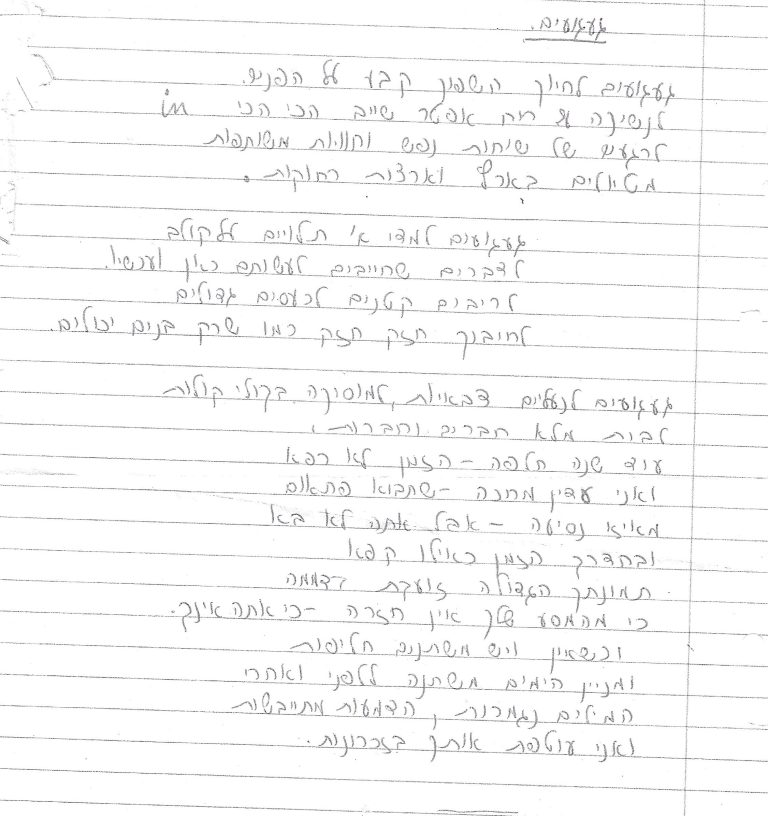 געגועים.
געגועים לחיוך השפוך קבע על הפנים.
לנשיקה עם ריח אפטר שייב הכי הכי in
לרגעים של שיחות נפש וחוויות משותפות
מטיולים בארץ וארצות רחוקות.
געגועים למדי א' תלויים על קולב
לדברים שחייבים לעשותם כאן ועכשיו.
לריבים קטנים לכעסים גדולים
לחיבוק חזק חזק כמו שרק בנים יכולים.
געגועים לנעליים צבאיות, למוסיקה בקולי קולות
לבית מלא חברים וחברות,
עוד שנה חלפה – הזמן לא רפא
ואני עדין מחכה – שתבוא פתאום
מאיזו נסיעה – אבל אתה לא בא
ובחדרך הזמן כאילו קפא
תמונתך הגדולה זועקת בדממה
כי מהמסע שלך אין חזרה – כי אתה אינך.
וכשאין ויש משתנים חליפות
ומניין הימים משתנה ללפני ואחרי
המילים נגמרות, הדמעות מתייבשות
ואני עוטפת אותך בזכרונות.